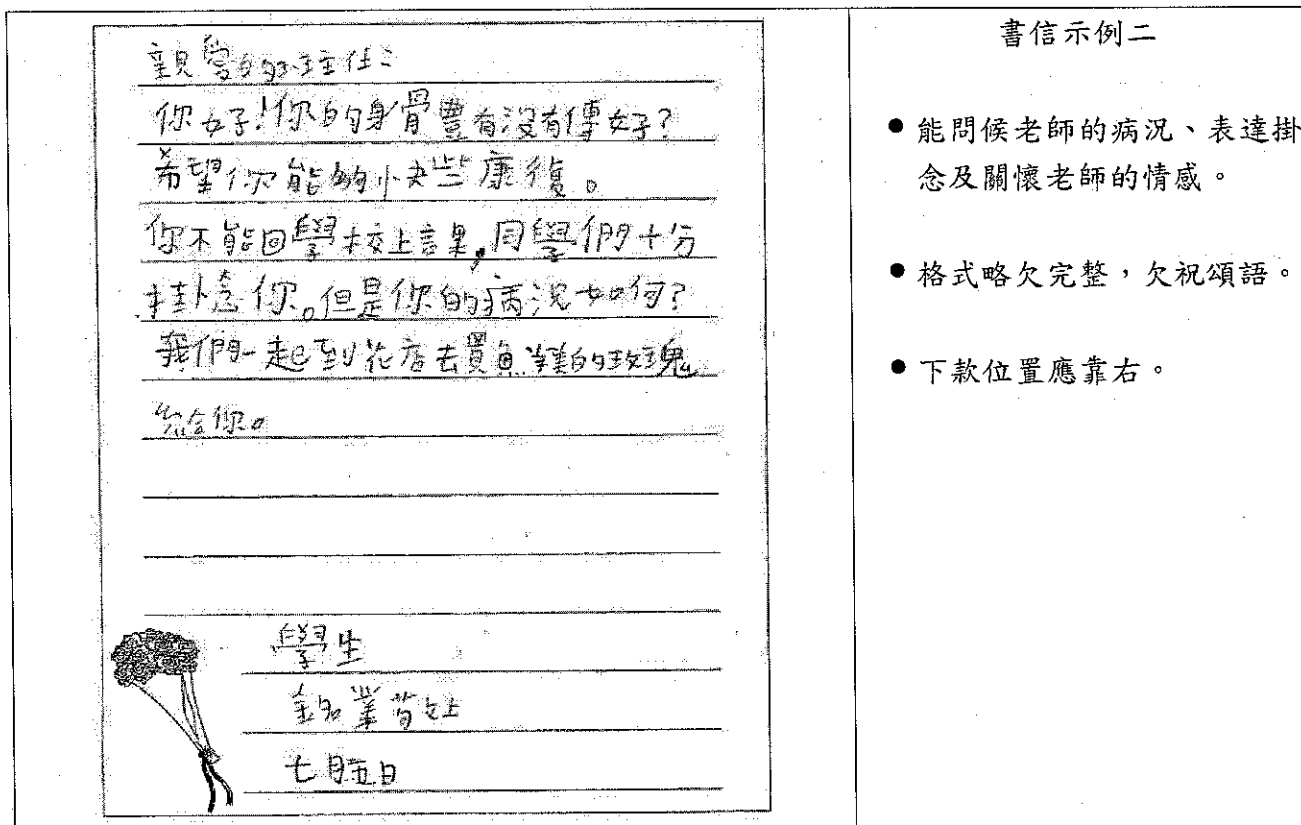 親愛的班主任：
你好！你的身體有沒有傳好？
希望你能夠快些康復。
你不能回學校上課，同學們十分
掛念你。但是你的病況如何？
我們一起到花店去買魚難的玫瑰
給你。
學生
銘業 上
七月五日
書信示例二
● 能問候老師的病況、表達掛
念及關懷老師的情感。
● 格式略欠完整，欠祝頌語。
● 下款位置應靠右。